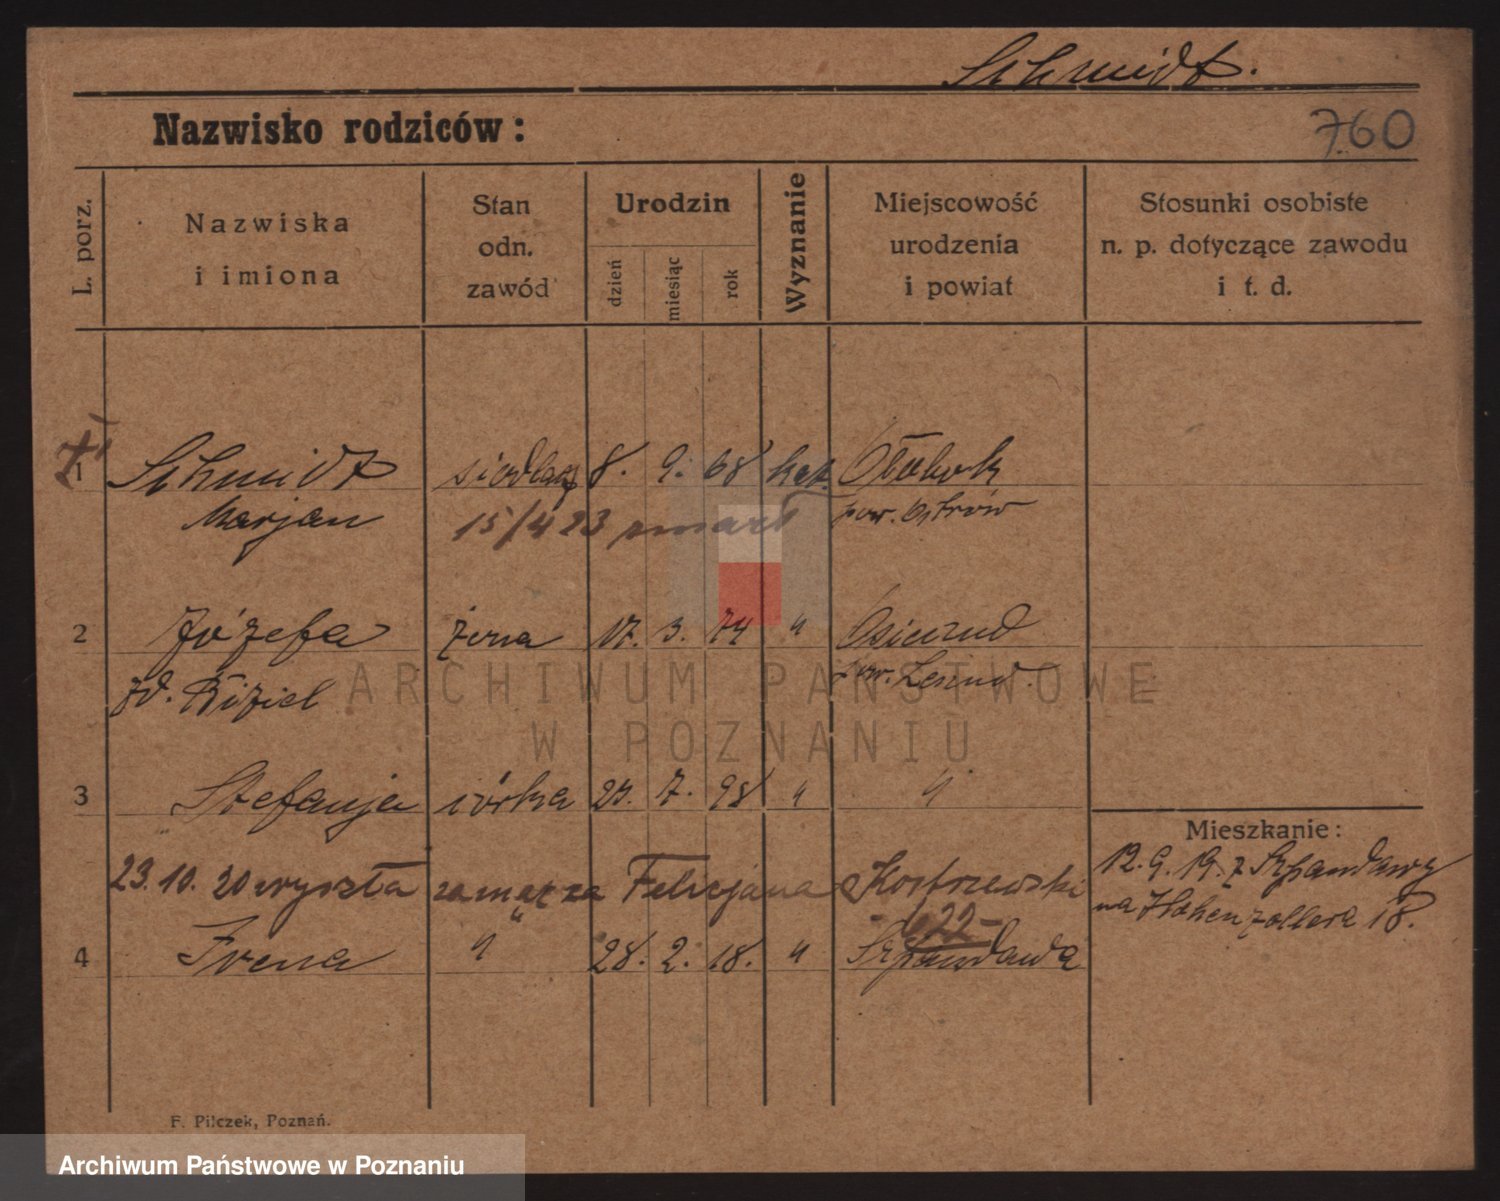 Schmidt.
Nazwisko rodziców:
760
L. porz.
Nazwiska
i imiona
Stan
odn.
zawód
Urodzin
dzień
miesiąc
rok
Wyznanie
Miejscowość
urodzenia
i powiat
Stosunki osobiste
n. p. dotyczące zawodu
i t. d.
1 Schmidt siodlarz 8. 9. 68 kat. Ołobok
Marjan 15/4 23 zmarł pow. Ostrów
2 Józefa żona 17. 3. 74 " Osieczno
zd. Kiziel pow. Leszno.
3 Stefanja córka 27. 7. 98 " "
Mieszkanie:
12. 9. 19. z Szpandawy
na Hohenzollera 18.
23. 10. 20 wyszła zamąż za Felicjana Kostrzewski
622
4 Irena " 28. 2. 18. " Szpandawa
F. Pilczek, Poznań.
ARCHIWUM PAŃSTWOWE
W POZNANIU
Archiwum Państwowe w Poznaniu